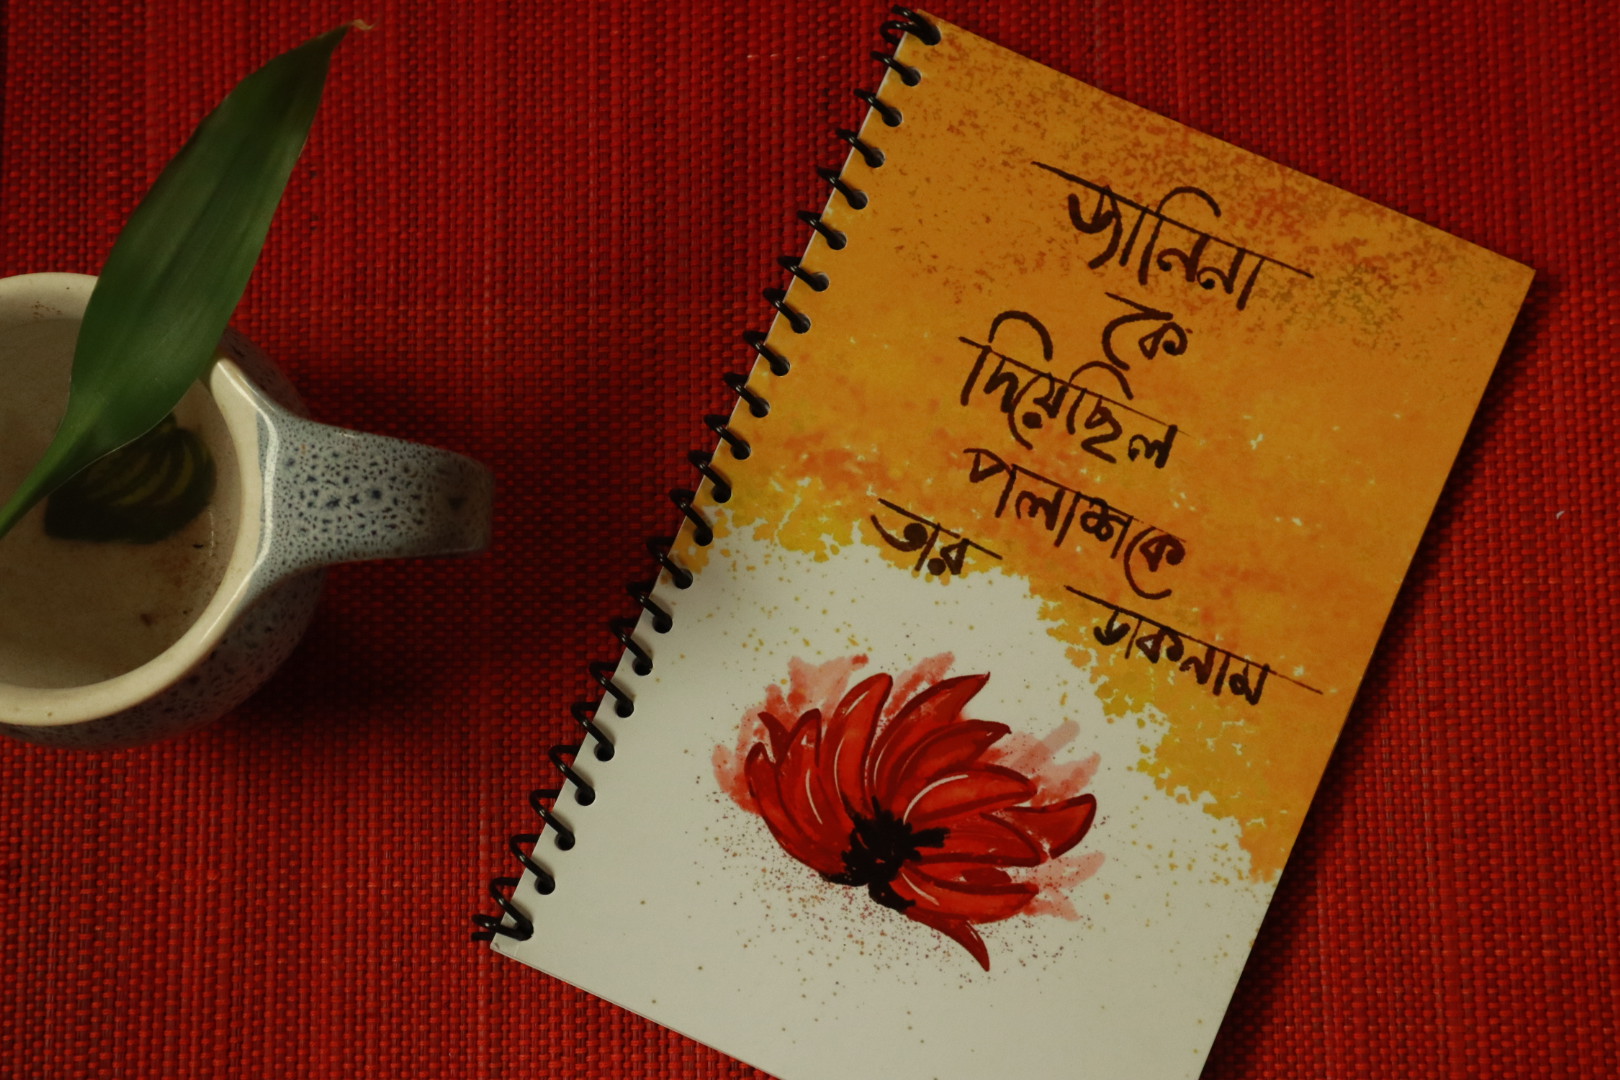 জানিনা
কে
দিয়েছিল
পলাশকে
তার ডাকনাম